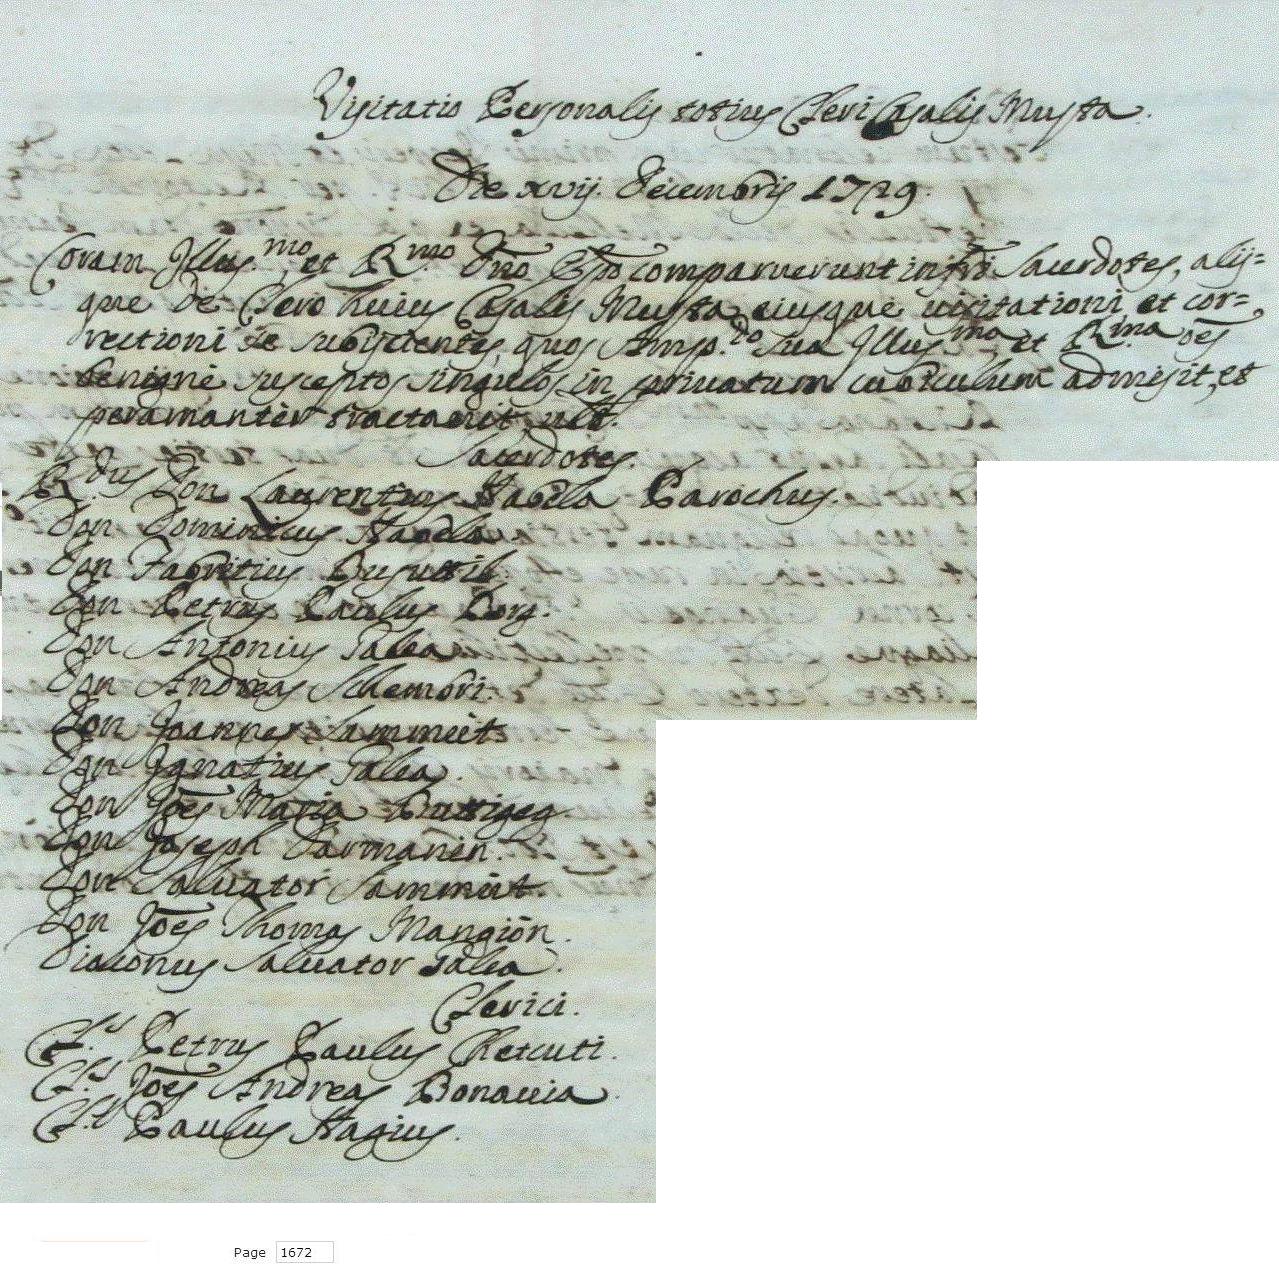 Visitatio Personalis totius Cleri Casalis Musta.
Die xvij Decembris 1729.
Coram Illus.mo et R.mo Dno Epo comparuerunt infri Sacerdotes, alij=
que de Clero huius Casalis Musta eiusque visitationi et cor=
rectioni se subijcientes, quos Amp.do Sua Illus.ma et R.ma oēs
benigne susceptos singulos in privatum cubiculum admisit, et
peramantèr
Sacerdotes.
R.dus Don Laurentius Habela Parochus.
Don Dominicus Habela.
Don Fabritius Busuttil.
Don Petrus Paulus Borg.
Don Antonius Galea
Don Andreas Schembri.
Don Joannes Sammut
Don Ignatius Galea.
Don Joēs Maria Buttigeg.
Don Joseph Darmanin.
Don Salvator Sammut.
Don Joēs Thomas Mangion.
Diaconus Salvator Galea.
Clerici.
Cl.s Petrus Paulus Chetcuti.
Cl.s Joēs Andreas Bonavia.
Cl.s Paulus Hagius.
Page 1672